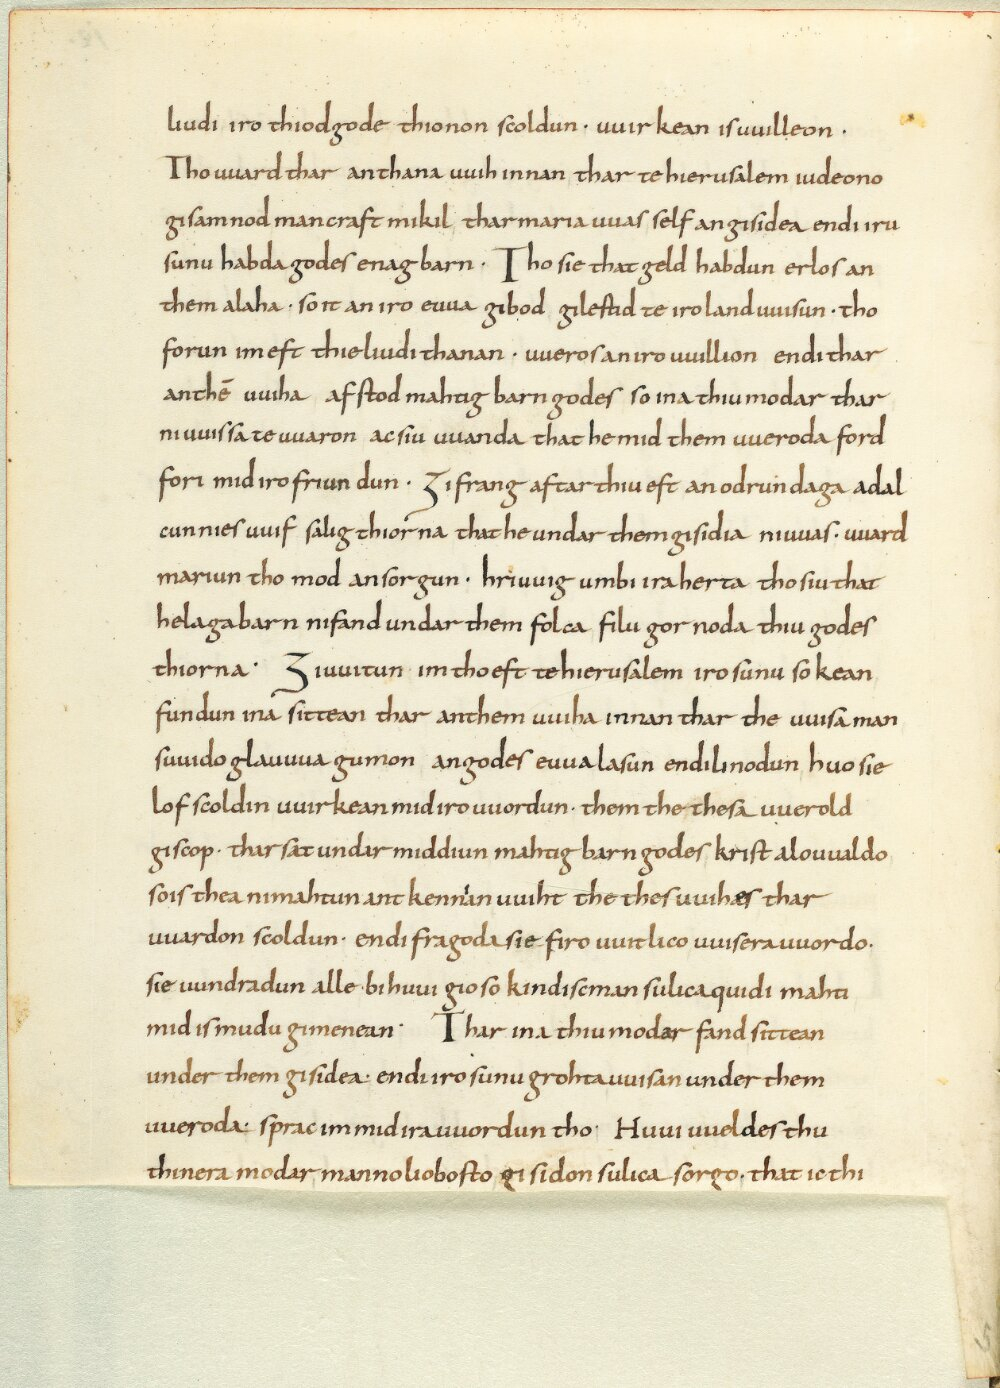 liudi iro thiodgode thionon scoldun · uuirkean is uuilleon ·
Tho uuard thar an thana uuih innan thar te hierusalem iudeono
gisamnod mancraft mikil thar maria uuas self an gisidea endi iru
sunu habda godes enag barn · Tho sie that geld habdun erlos an
them alaha · so it an iro euua gibod gilestid te iro landuuisun · tho
forun im eft thie liudi thanan · uueros an iro uuillion endi thar
an thē uuiha afstod mahtig barn godes so ina thiu modar thar
ni uuissa te uuaron ac siu uuanda that he mid them uueroda ford
fori mid iro friundun · Gifrang aftar thiu eft an odrun daga adal
cunnies uuif salig thiorna that he undar them gisidia ni uuas · uuard
mariun tho mod an sorgun · hriuuig umbi ira herta tho siu that
helaga barn ni fand undar them folca filu gornoda thiu godes
thiorna · Giuuitun im tho eft te hierusalem iro sunu sokean
fundun ina sittean thar an them uuiha innan thar the uuisa man
suuido glauuua gumon an godes euua lasun endi linodun huo sie
lof scoldin uuirkean mid iro uuordun · them the thesa uuerold
giscop · thar sat undar middiun mahtig barn godes krist alouualdo
so is thea ni mahtun antkennian uuiht the thes uuihes thar
uuardon scoldun · endi fragoda sie firo uuitlico uuisera uuordo ·
sie uundradun alle bihuui gio so kindisc man sulica quidi mahti
mid is mudu gimenean · Thar ina thiu modar fand sittean
under them gisidea · endi iro sunu grohta uuisan under them
uueroda · sprac im mid ira uuordun tho · Huui uueldes thu
thinera modar manno liobosto gisidon sulica sorgo · that ic thi